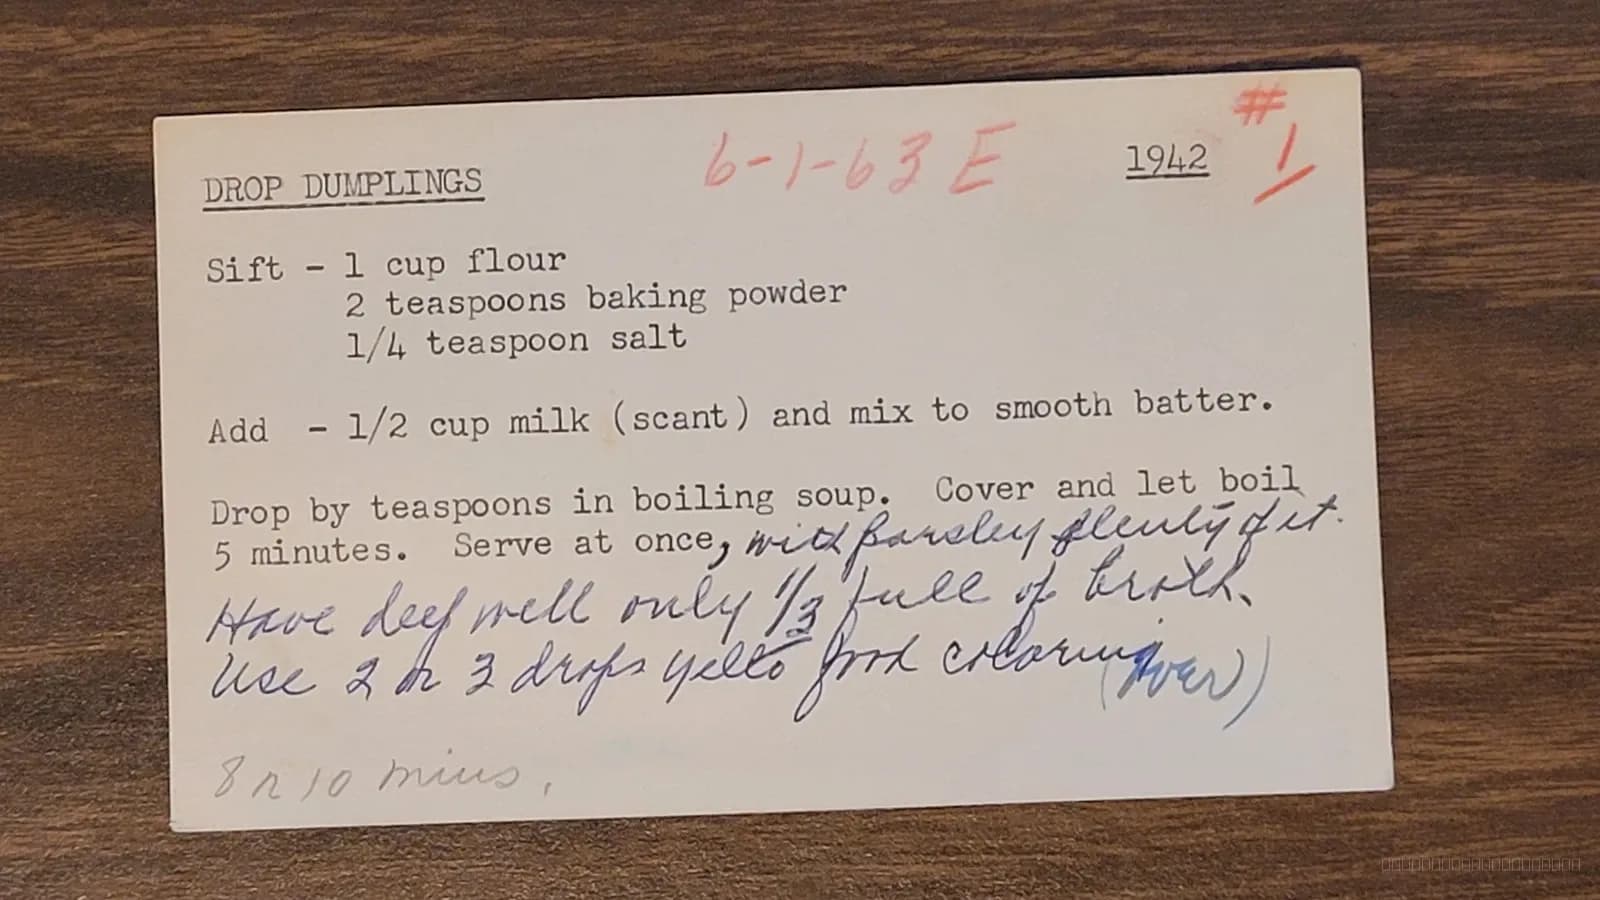 # 1
6-1-63 E
1942
DROP DUMPLINGS
Sift - 1 cup flour
2 teaspoons baking powder
1/4 teaspoon salt
Add - 1/2 cup milk (scant) and mix to smooth batter.
Drop by teaspoons in boiling soup. Cover and let boil
5 minutes. Serve at once, with parsley plenty of it.
Have deep well only 1/3 full of broth.
Use 2 or 3 drops yello food coloring
(over)
8 r 10 mins.